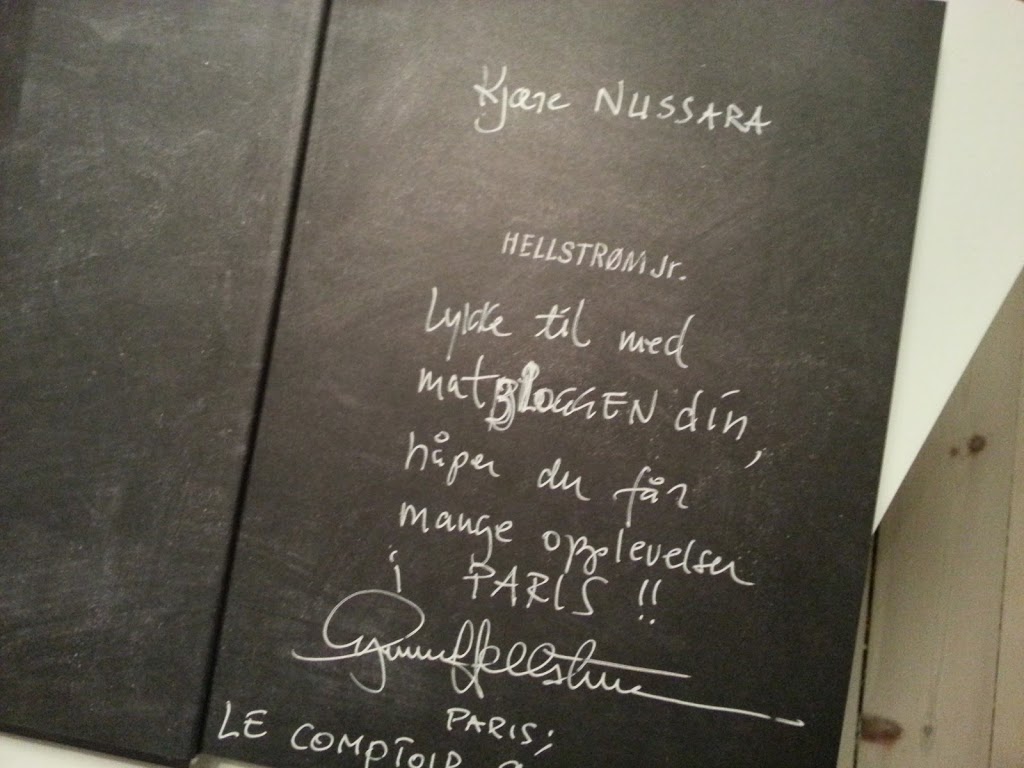 Kjære NUSSARA
HELLSTRØM Jr.
Lykke til med
matBLOGGEN din,
håper du får
mange opplevelser
i PARIS !!
PARIS;
LE COMPTOIR